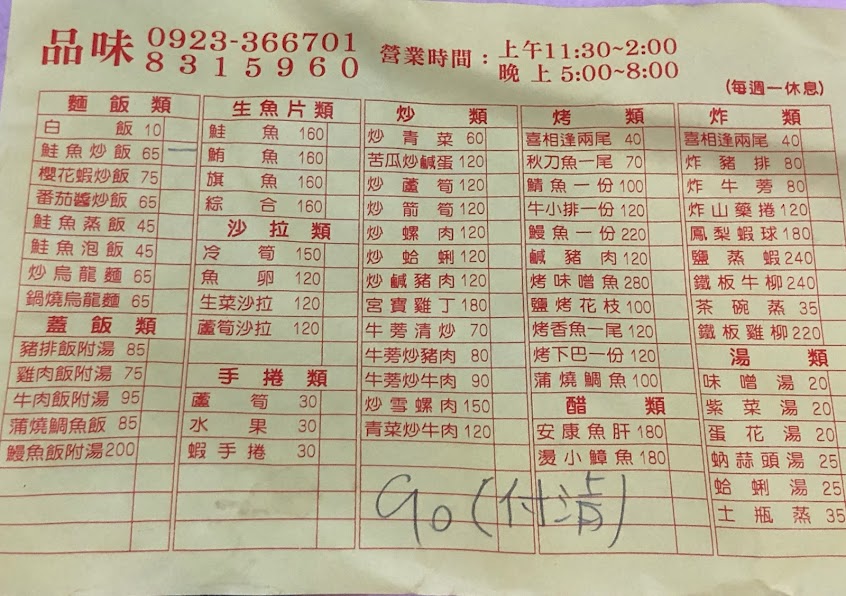 品味 0923-366701
8315960
營業時間：上午11:30~2:00
晚上 5:00~8:00
(每週一休息)
麵飯類
白飯 10
鮭魚炒飯 65 一
櫻花蝦炒飯 75
番茄醬炒飯 65
鮭魚蒸飯 45
鮭魚泡飯 45
炒烏龍麵 65
鍋燒烏龍麵 65
蓋飯類
豬排飯附湯 85
雞肉飯附湯 75
牛肉飯附湯 95
蒲燒鯛魚飯 85
鰻魚飯附湯 200
生魚片類
鮭魚 160
鮪魚 160
旗魚 160
綜合 160
沙拉類
冷筍 150
魚卵 120
生菜沙拉 120
蘆筍沙拉 120
手捲類
蘆筍 30
水果 30
蝦手捲 30
炒類
炒青菜 60
苦瓜炒鹹蛋 120
炒蘆筍 120
炒箭筍 120
炒螺肉 120
炒蛤蜊 120
炒鹹豬肉 120
宮寶雞丁 180
牛蒡清炒 70
牛蒡炒豬肉 80
牛蒡炒牛肉 90
炒雪螺肉 150
青菜炒牛肉 120
烤類
喜相逢兩尾 40
秋刀魚一尾 70
鯖魚一份 100
牛小排一份 120
鰻魚一份 220
鹹豬肉 120
烤味噌魚 280
鹽烤花枝 100
烤香魚一尾 120
烤下巴一份 120
蒲燒鯛魚 100
醋類
安康魚肝 180
燙小鱆魚 180
炸類
喜相逢兩尾 40
炸豬排 80
炸牛蒡 80
炸山藥捲 120
鳳梨蝦球 180
鹽蒸蝦 240
鐵板牛柳 240
茶碗蒸 35
鐵板雞柳 220
湯類
味噌湯 20
紫菜湯 20
蛋花湯 20
蚋蒜頭湯 25
蛤蜊湯 25
土瓶蒸 35
90 (付清)